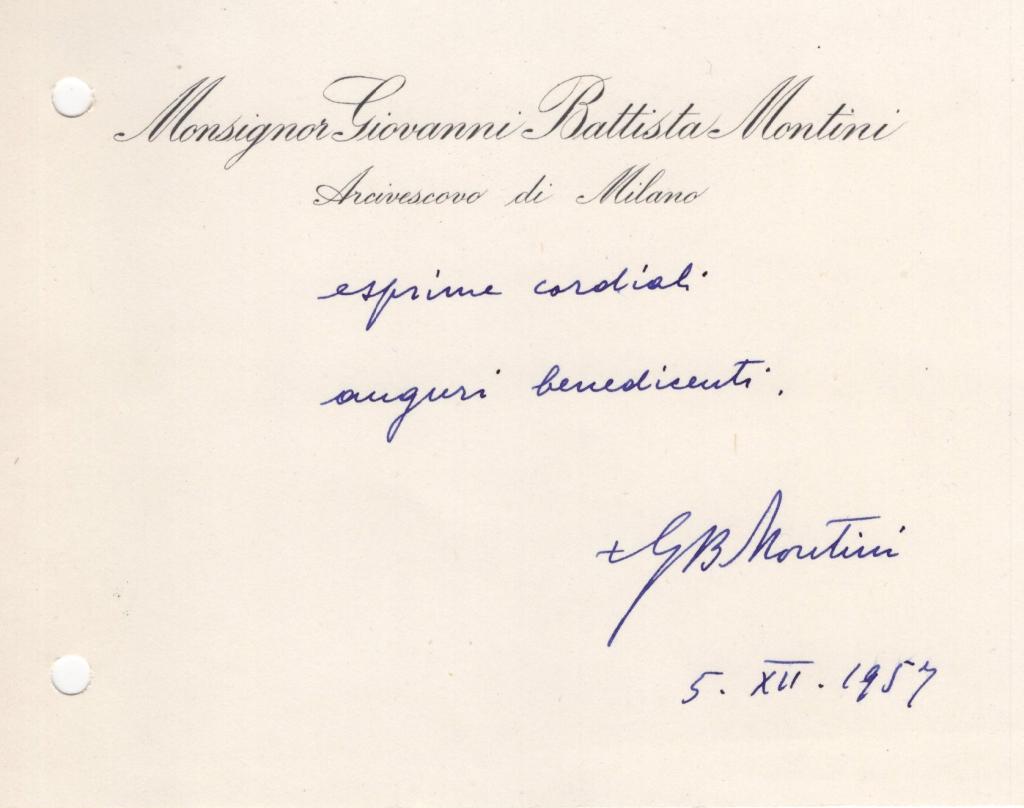 Monsignor Giovanni Battista Montini
Arcivescovo di Milano
esprime cordiali
auguri benedicenti.
+ GBMontini
5. XII. 1957